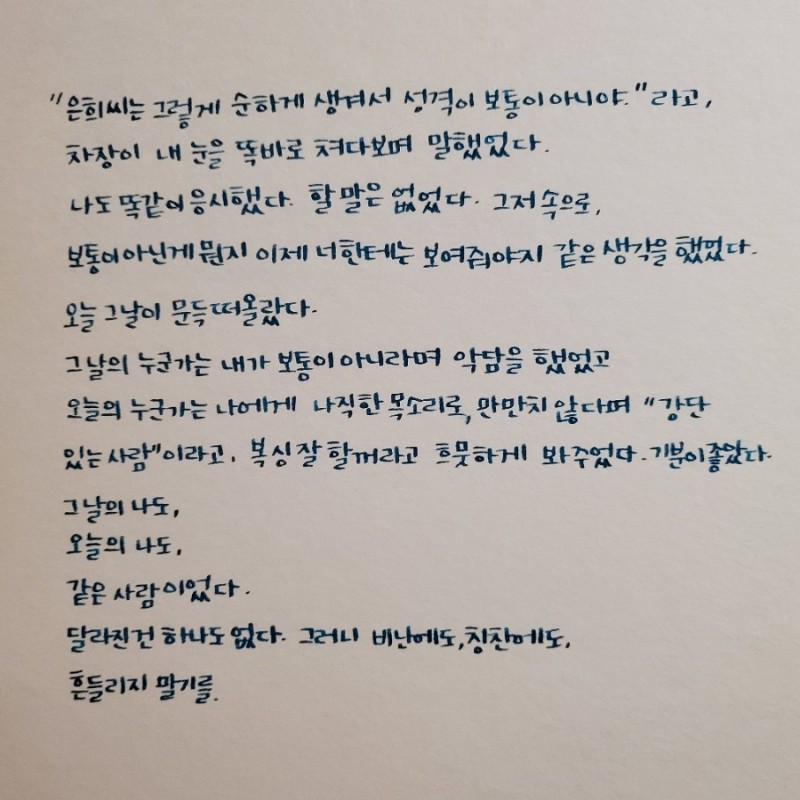 "은희씨는 그렇게 순하게 생겨서 성격이 보통이 아니야." 라고,
차장이 내 눈을 똑바로 쳐다보며 말했었다.
나도 똑같이 응시했다. 할 말은 없었다. 그저 속으로,
보통이 아닌게 뭔지 이제 너한테는 보여줘야지 같은 생각을 했었다.
오늘 그날이 문득 떠올랐다.
그날의 누군가는 내가 보통이 아니라며 악담을 했었고
오늘의 누군가는 나에게 나직한 목소리로, 만만치 않다며 "강단
있는 사람"이라고. 복싱 잘 할꺼라고 흐뭇하게 봐 주었다. 기분이 좋았다.
그날의 나도,
오늘의 나도,
같은 사람이었다.
달라진건 하나도 없다. 그러니 비난에도, 칭찬에도,
흔들리지 말기를.